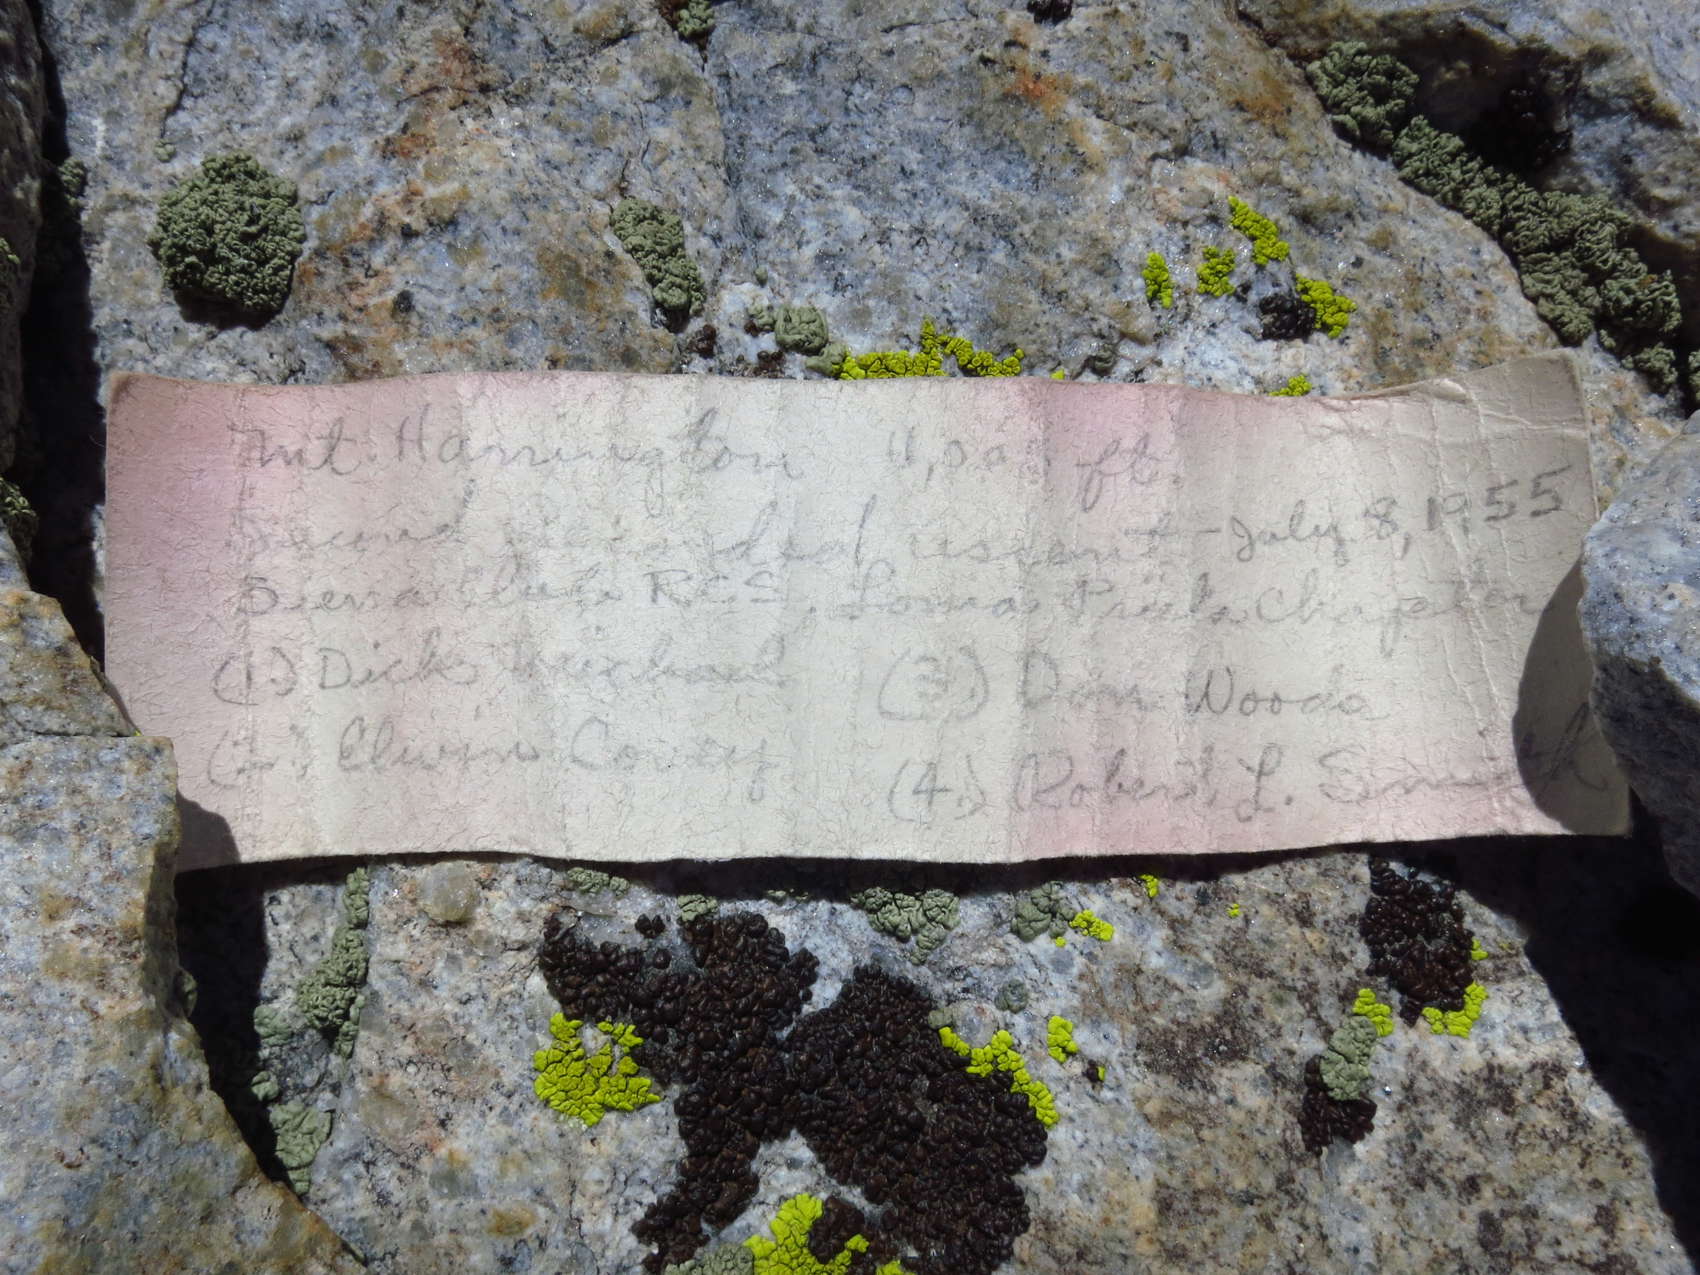 Mt. Harrington 11,005 ft.
Second recorded ascent - July 8, 1955
Sierra Club RCS, Loma Prieta Chapter
(1.) Dick (3.) Don Woods
(2.) Elwin Covey (4.) Robert L. Smith